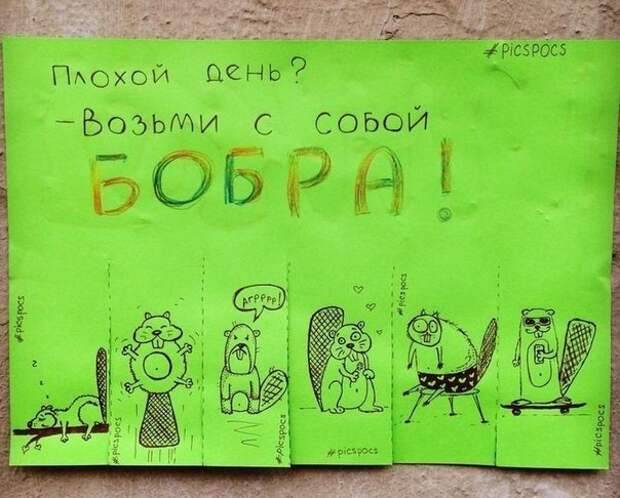 #PICSPOCS
Плохой день?
-Возьми с собой
БОБРА!
#picspocs
z z
#picspocs
АГРРРР!
#picspocs
#picspocs
#picspocs
#picspocs